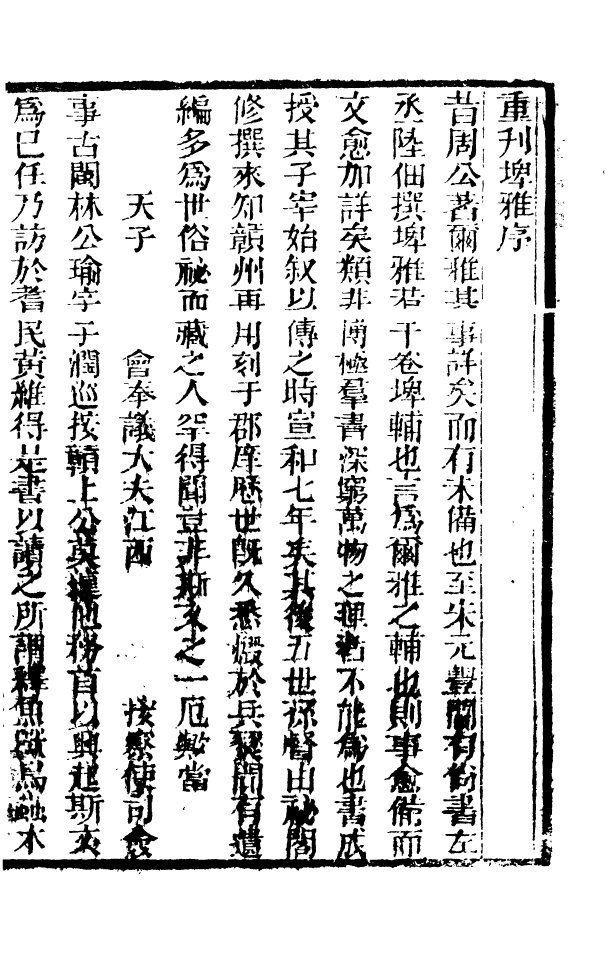 重刊埤雅序
昔周公著爾雅其事詳矣而有未備也至宋元豐間有尚書左
丞陸佃撰埤雅若干卷埤輔也言爲爾雅之輔也則事愈備而
文愈加詳矣類非博極羣書深窮萬物之理者不能爲也書成
授其子宰始敘以傳之時宣和七年矣其後五世孫壑由祕閣
修撰來知贑州再用刻于郡庠歷世旣久悉燬於兵燹間有遺
編多爲世俗祕而藏之人罕得聞豈非斯文之一厄歟當
天子 會奉議大夫江西 按察使司僉
事古閩林公瑜字子潤巡按贑上公莫攘他務首以興起斯文
爲已任乃訪於耆民黄維得是書以讀之所謂釋魚獸鳥蟲木